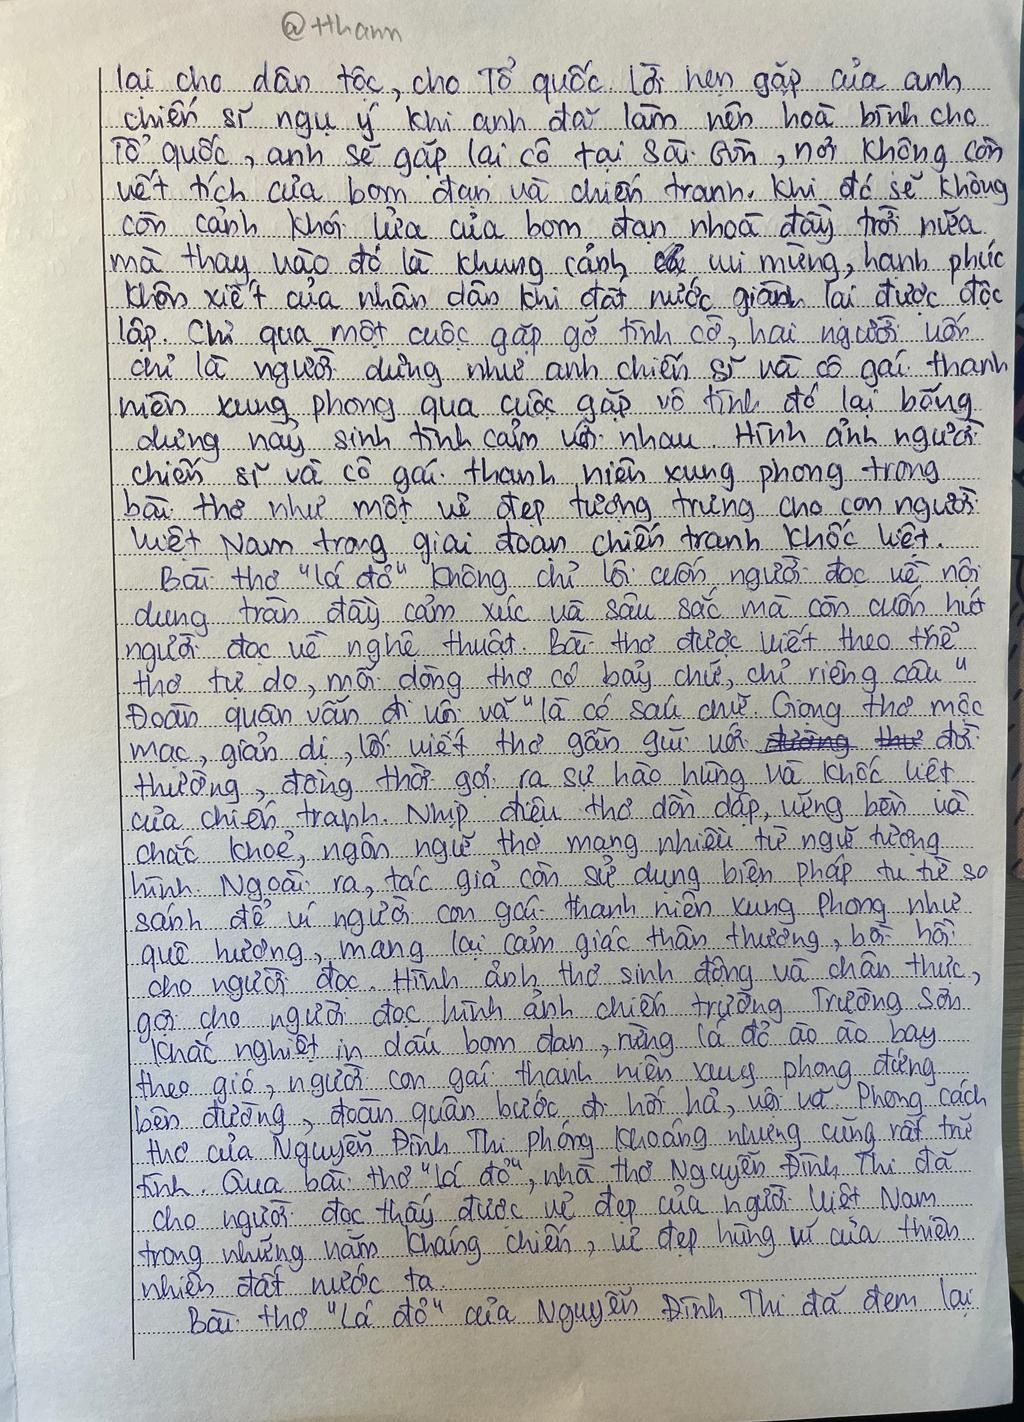 @tthann
lại cho dân tộc, cho Tổ quốc. Lời hẹn gặp của anh
chiến sĩ ngụ ý khi anh đã làm nên hoà bình cho
Tổ quốc, anh sẽ gặp lại cô tại Sài Gòn, nơi không còn
vết tích của bom đạn và chiến tranh. Khi đó sẽ không
còn cảnh khói lửa của bom đạn nhoà đầy trời nữa
mà thay vào đó là khung cảnh vui mừng, hạnh phúc
khôn xiết của nhân dân khi đất nước giành lại được độc
lập. Chỉ qua một cuộc gặp gỡ tình cờ, hai người vốn
chỉ là người dưng như anh chiến sĩ và cô gái thanh
niên xung phong qua cuộc gặp vô tình đó lại bỗng
dưng nảy sinh tình cảm với nhau. Hình ảnh người
chiến sĩ và cô gái thanh niên xung phong trong
bài thơ như một vẻ đẹp tượng trưng cho con người
Việt Nam trong giai đoạn chiến tranh khốc liệt.
Bài thơ "Lá đỏ" không chỉ lôi cuốn người đọc về nội
dung tràn đầy cảm xúc và sâu sắc mà còn cuốn hút
người đọc về nghệ thuật. Bài thơ được viết theo thể
thơ tự do, mỗi dòng thơ có bảy chữ, chỉ riêng câu "
Đoàn quân vẫn đi vội vã" là có sáu chữ. Giọng thơ mộc
mạc, giản dị, lối viết thơ gần gũi với đời
thường, đồng thời gợi ra sự hào hùng và khốc liệt
của chiến tranh. Nhịp điệu thơ dồn dập, vững bền và
chắc khoẻ, ngôn ngữ thơ mang nhiều từ ngữ tượng
hình. Ngoài ra, tác giả còn sử dụng biện pháp tu từ so
sánh để ví người con gái thanh niên xung phong như
quê hương, mang lại cảm giác thân thương, bồi hồi
cho người đọc. Hình ảnh thơ sinh động và chân thực,
gợi cho người đọc hình ảnh chiến trường Trường Sơn
khắc nghiệt in dấu bom đạn, rừng lá đỏ ào ào bay
theo gió, người con gái thanh niên xung phong đứng
bên đường, đoàn quân bước đi hối hả, vội vã. Phong cách
thơ của Nguyễn Đình Thi phóng khoáng nhưng cũng rất trữ
tình. Qua bài thơ "Lá đỏ", nhà thơ Nguyễn Đình Thi đã
cho người đọc thấy được vẻ đẹp của người Việt Nam
trong những năm kháng chiến, vẻ đẹp hùng vĩ của thiên
nhiên đất nước ta.
Bài thơ "Lá đỏ" của Nguyễn Đình Thi đã đem lại